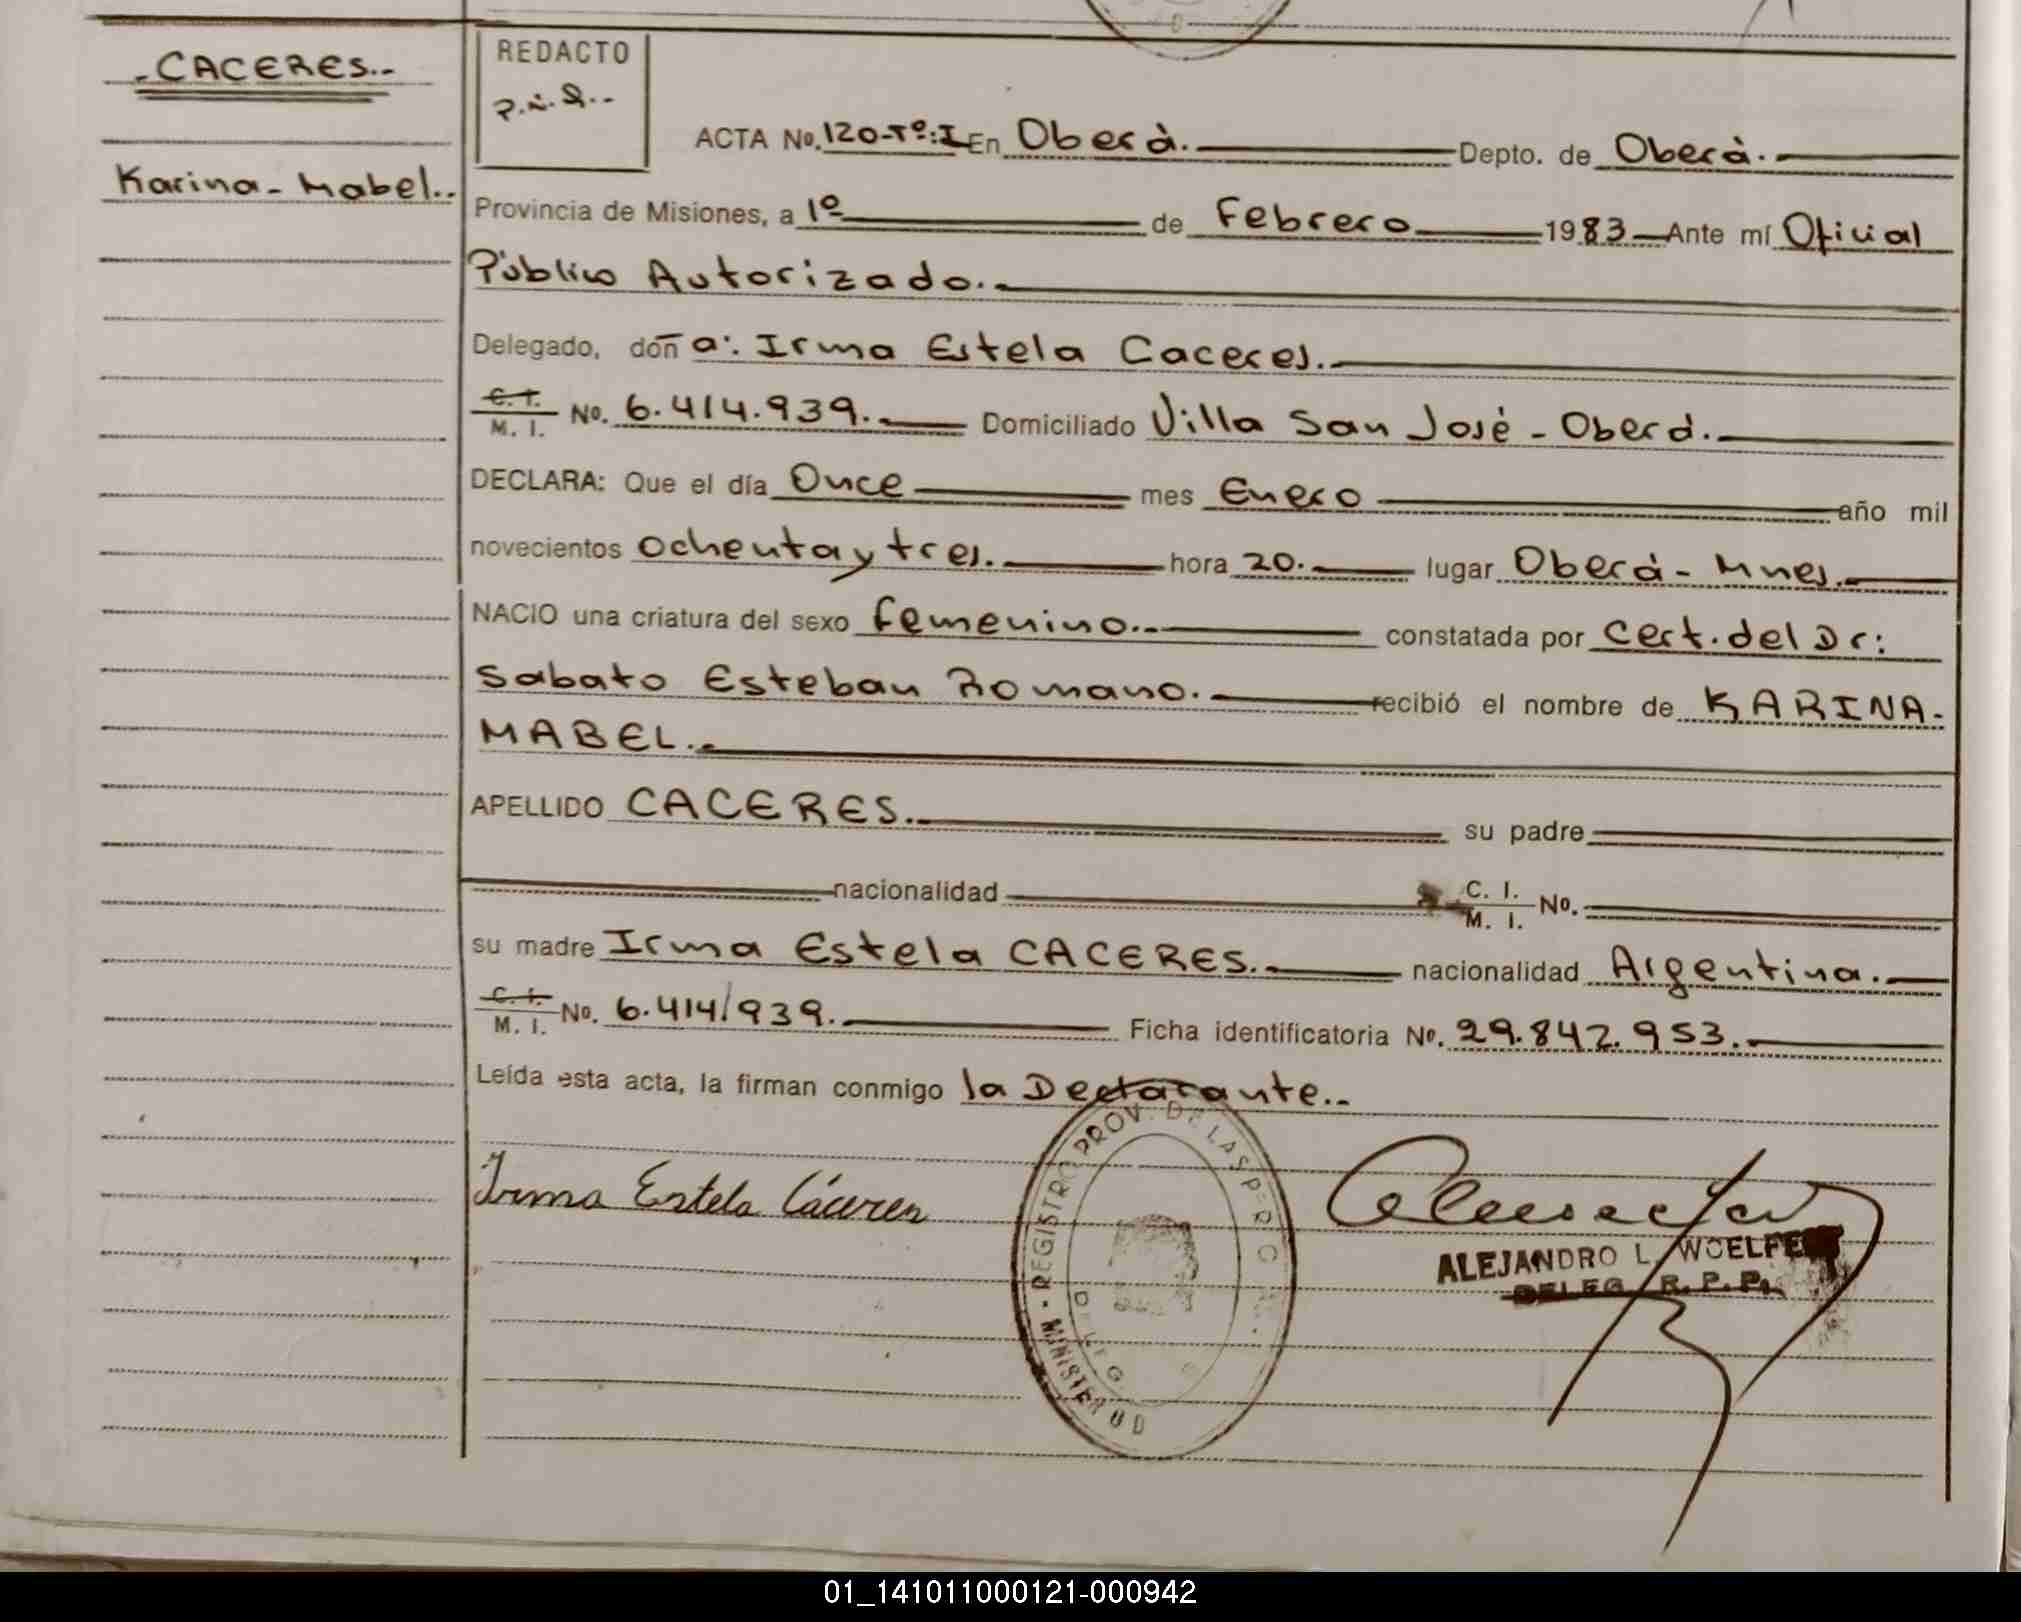 -CACERES.-
Karina-Mabel..
REDACTO
ACTA No. 120-Tº:I En Oberà. Depto. de Oberà.
Provincia de Misiones, a 1º de Febrero 1983 Ante mí Oficial
Pùblico Autorizado.
Delegado, doña: Irma Estela Caceres.
C. I. / M. I. No. 6.414.939. Domiciliado Villa San Josè - Oberá.
DECLARA: Que el día Once mes Enero año mil
novecientos ochenta y tres. hora 20. lugar Oberà - Mnes.
NACIO una criatura del sexo femenino.- constatada por Cert. del Dr:
Sabato Esteban Romano. recibió el nombre de KARINA-
MABEL.
APELLIDO CACERES. su padre
nacionalidad C. I. / M. I. No.
su madre Irma Estela CACERES. nacionalidad Argentina.
C. I. / M. I. No. 6.414.939. Ficha identificatoria No. 29.842.953.
Leída esta acta, la firman conmigo la Declarante..
Irma Estela Cáceres
REGISTRO PROV. DE LAS PER
MINISTER
DELEG
ALEJANDRO L. WOELFE
DELEG. R. P. P.
01_141011000121-000942